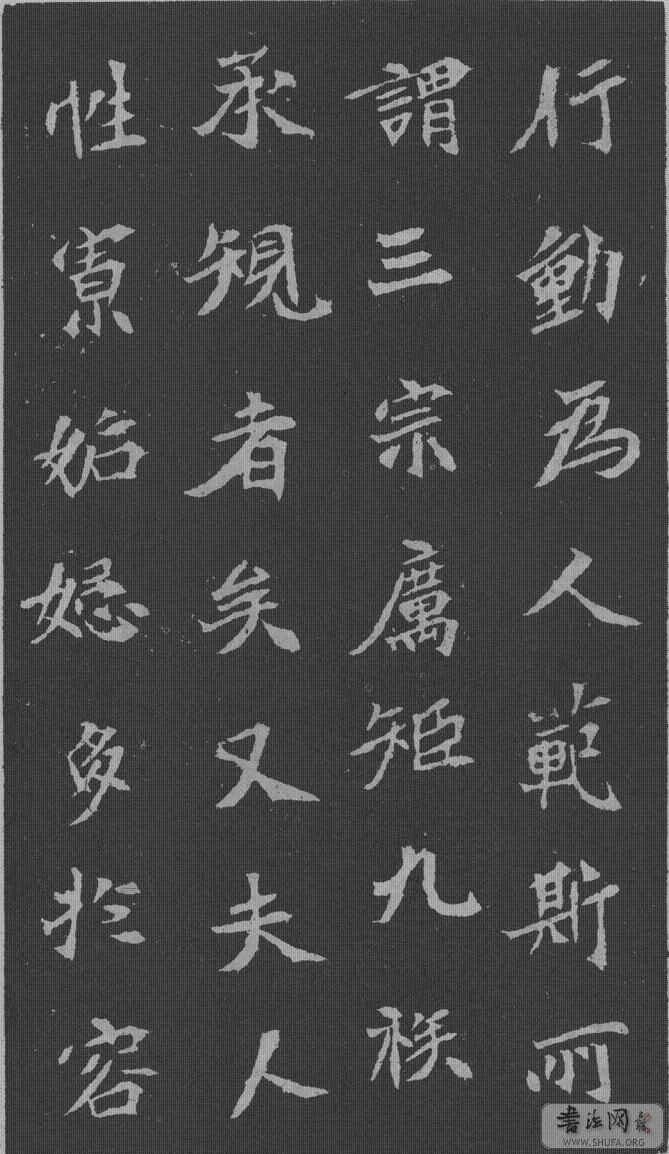 行動為人範斯所
謂三宗厲矩九秩
承規者矣又夫人
性寡妬忌多於容
書法网
WWW.SHUFA.ORG